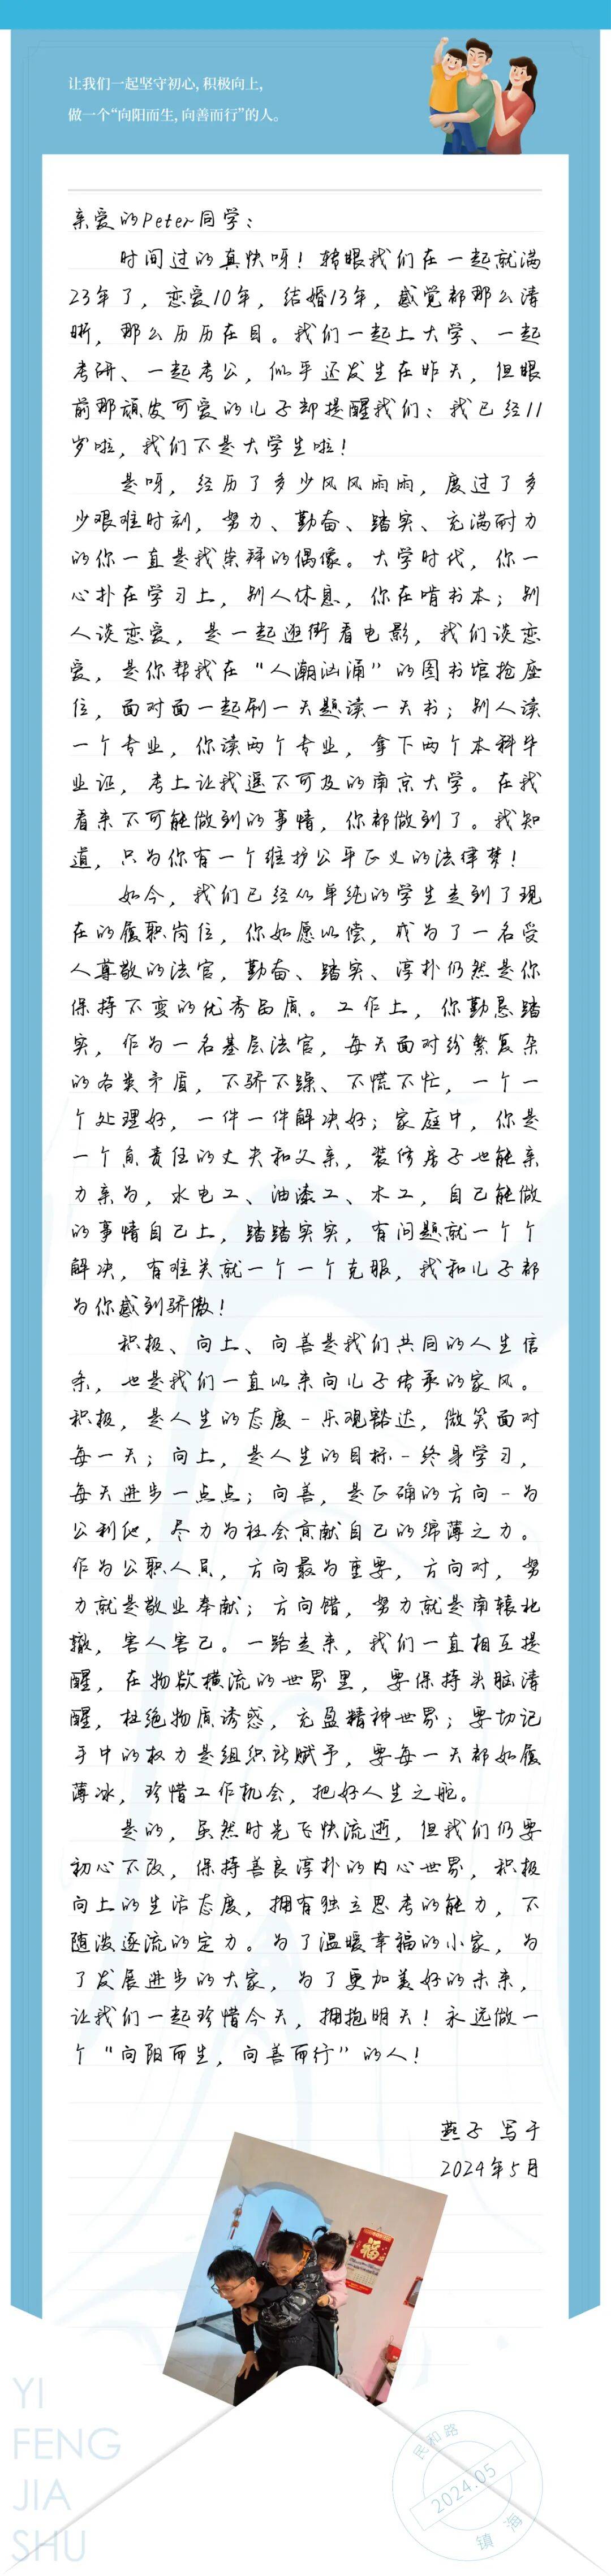 让我们一起坚守初心, 积极向上,
做一个“向阳而生, 向善而行”的人。
亲爱的Peter同学：
时间过的真快呀！转眼我们在一起就满
23年了，恋爱10年，结婚13年，感觉都那么清
晰，那么历历在目。我们一起上大学、一起
考研、一起考公，似乎还发生在昨天，但眼
前那顽皮可爱的儿子却提醒我们：我已经11
岁啦，我们不是大学生啦！
是呀，经历了多少风风雨雨，度过了多
少艰难时刻，努力、勤奋、踏实、充满耐力
的你一直是我崇拜的偶像。大学时代，你一
心扑在学习上，别人休息，你在啃书本；别
人谈恋爱，是一起逛街看电影，我们谈恋
爱，是你帮我在“人潮汹涌”的图书馆抢座
位，面对面一起刷一天题读一天书；别人读
一个专业，你读两个专业，拿下两个本科毕
业证，考上让我遥不可及的南京大学。在我
看来不可能做到的事情，你都做到了。我知
道，只为你有一个维护公平正义的法律梦！
如今，我们已经从单纯的学生走到了现
在的履职岗位，你如愿以偿，成为了一名受
人尊敬的法官，勤奋、踏实、淳朴仍然是你
保持不变的优秀品质。工作上，你勤恳踏
实，作为一名基层法官，每天面对纷繁复杂
的各类矛盾，不骄不躁、不慌不忙，一个一
个处理好，一件一件解决好；家庭中，你是
一个负责任的丈夫和父亲，装修房子也能亲
力亲为，水电工、油漆工、木工，自己能做
的事情自己上，踏踏实实，有问题就一个个
解决，有难关就一个一个克服，我和儿子都
为你感到骄傲！
积极、向上、向善是我们共同的人生信
条，也是我们一直以来向儿子传承的家风。
积极，是人生的态度-乐观豁达，微笑面对
每一天；向上，是人生的目标-终身学习，
每天进步一点点；向善，是正确的方向-为
公利他，尽力为社会贡献自己的绵薄之力。
作为公职人员，方向最为重要，方向对，努
力就是敬业奉献；方向错，努力就是南辕北
辙，害人害己。一路走来，我们一直相互提
醒，在物欲横流的世界里，要保持头脑清
醒，杜绝物质诱惑，充盈精神世界；要切记
手中的权力是组织所赋予，要每一天都如履
薄冰，珍惜工作机会，把好人生之舵。
是的，虽然时光飞快流逝，但我们仍要
初心不改，保持善良淳朴的内心世界，积极
向上的生活态度，拥有独立思考的能力，不
随波逐流的定力。为了温暖幸福的小家，为
了发展进步的大家，为了更加美好的未来，
让我们一起珍惜今天，拥抱明天！永远做一
个“向阳而生，向善而行”的人！
燕子 写于
2024年5月
福
YI
FENG
JIA
SHU
民和路
2024.05
镇海